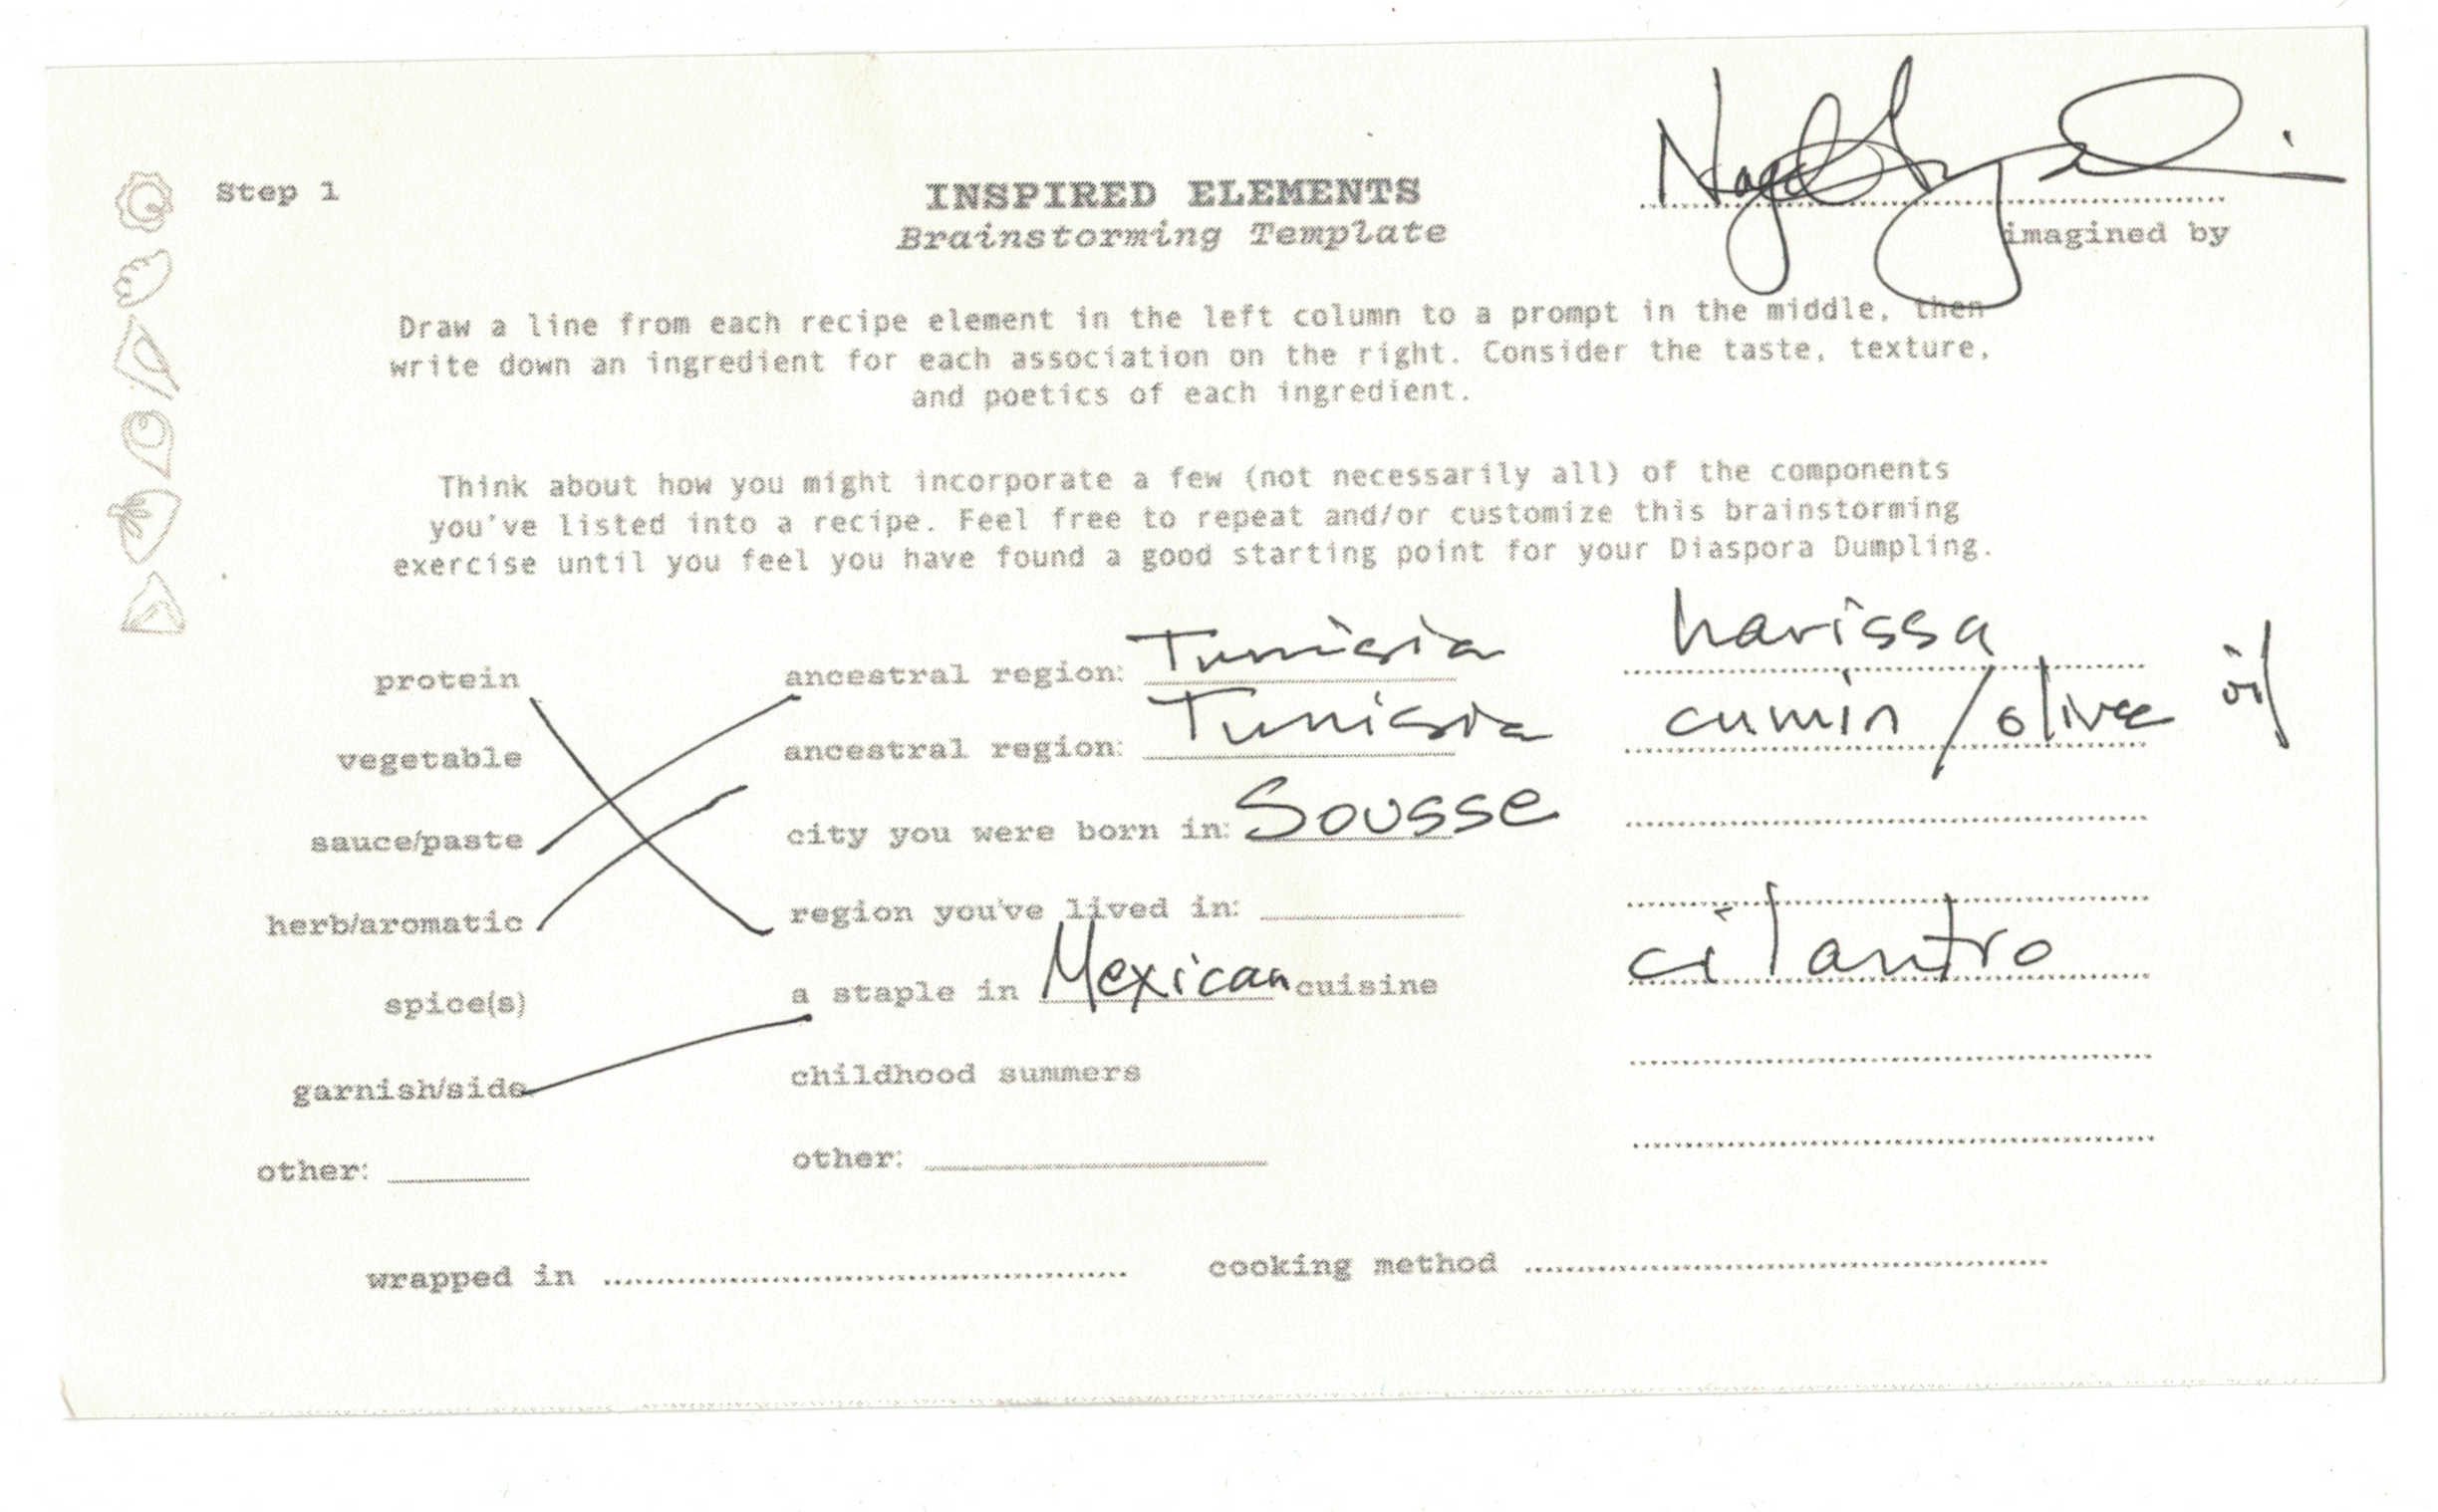 Step 1
INSPIRED ELEMENTS
Brainstorming Template
imagined by
Draw a line from each recipe element in the left column to a prompt in the middle, then
write down an ingredient for each association on the right. Consider the taste, texture,
and poetics of each ingredient.
Think about how you might incorporate a few (not necessarily all) of the components
you've listed into a recipe. Feel free to repeat and/or customize this brainstorming
exercise until you feel you have found a good starting point for your Diaspora Dumpling.
protein
vegetable
sauce/paste
herb/aromatic
spice(s)
garnish/side
other:
ancestral region: Tunisia
ancestral region: Tunisia
city you were born in: Sousse
region you've lived in:
a staple in Mexican cuisine
childhood summers
other:
harissa
cumin / olive oil
cilantro
wrapped in
cooking method